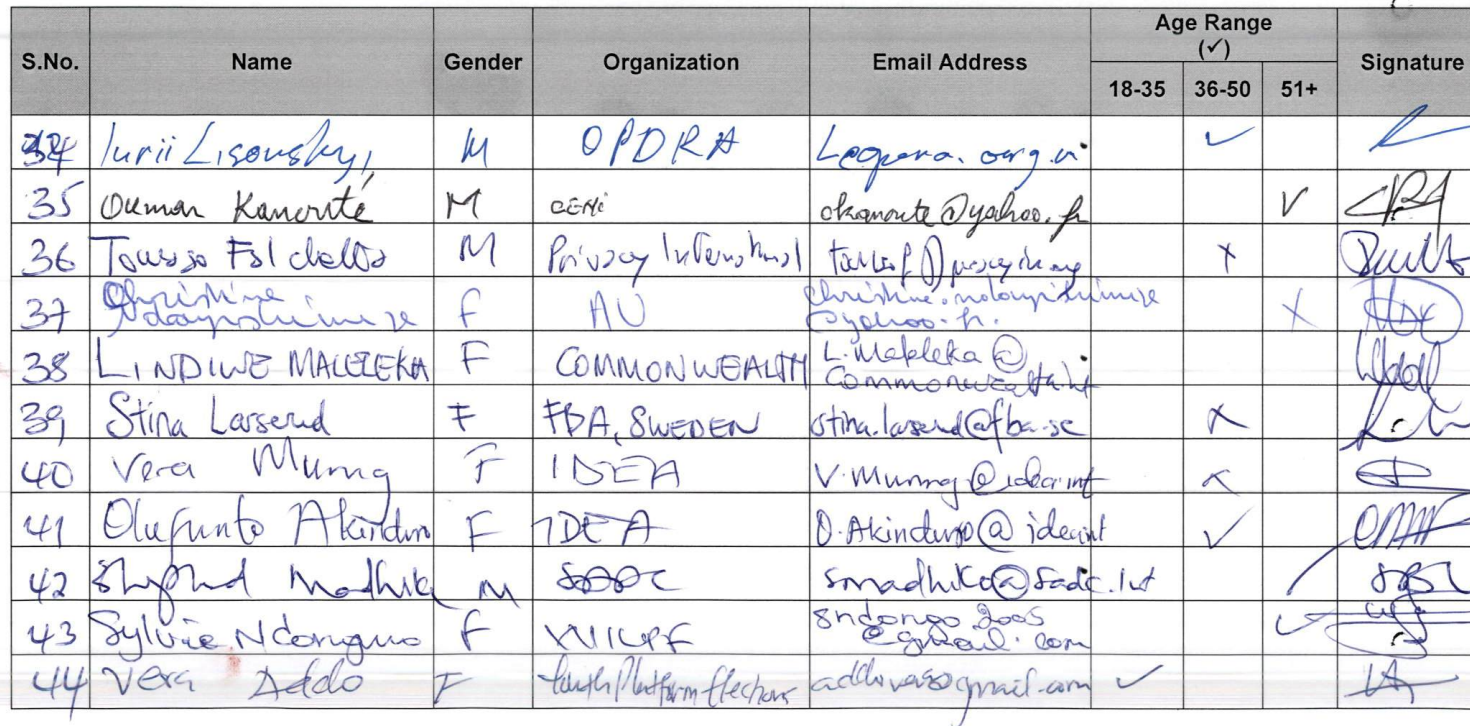 S.No. Name Gender Organization Email Address Age Range (✓) Signature
18-35 36-50 51+
34 Iurii Lisovskyi, M OPDRA ✓
35 Oumar Kanouté M CENI okanoute@yahoo.fr V
36 M Privacy International X
37 Christine Ndayishimiye F AU christine.ndayishimiye
@yahoo.fr. X
38 LINDIWE MALELEKA F COMMONWEALTH L.Maleleka@
Commonwealth.int
39 Stina Larserud F FBA, SWEDEN stina.larserud@fba.se X
40 Vera Mumg F IDEA V.Mumg@idea.int X
41 Olufunto Akinduro F IDEA O.Akinduro@idea.int ✓
42 Madhik M SADC smadhiko@sadc.int ✓
43 Sylvie Ndongmo F WILPF sndongo2005
@gmail.com ✓
44 Vera Addo F Youth Platform Elections ✓